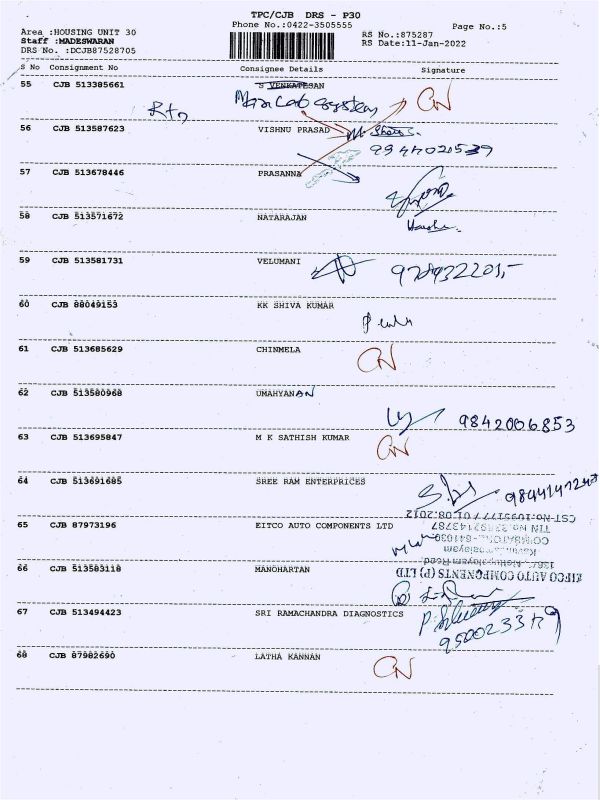 TPC/CJB DRS - P30
Phone No.:0422-3505555
Page No.:5
Area :HOUSING UNIT 30
Staff :MADESWARAN
DRS No. :DCJB87528705
RS No.:875287
RS Date:11-Jan-2022
S No Consignment No Consignee Details Signature
55 CJB 513385661 S VENKATESAN
CN
56 CJB 513587623 VISHNU PRASAD
9944020539
57 CJB 513678446 PRASANNA
58 CJB 513571672 NATARAJAN
59 CJB 513581731 VELUMANI
60 CJB 88049153 KK SHIVA KUMAR
61 CJB 513685629 CHINMELA
CN
62 CJB 513580968 UMAHYANAN
9842006853
63 CJB 513695847 M K SATHISH KUMAR
CN
64 CJB 513691685 SREE RAM ENTERPRICES
65 CJB 87973196 EITCO AUTO COMPONENTS LTD
CST-No.1095177 / 01.08.2012
66 CJB 513583118 MANOHARTAN
AUTO COMPONENTS (P) LTD
67 CJB 513494423 SRI RAMACHANDRA DIAGNOSTICS
68 CJB 87982690 LATHA KANNAN
CN